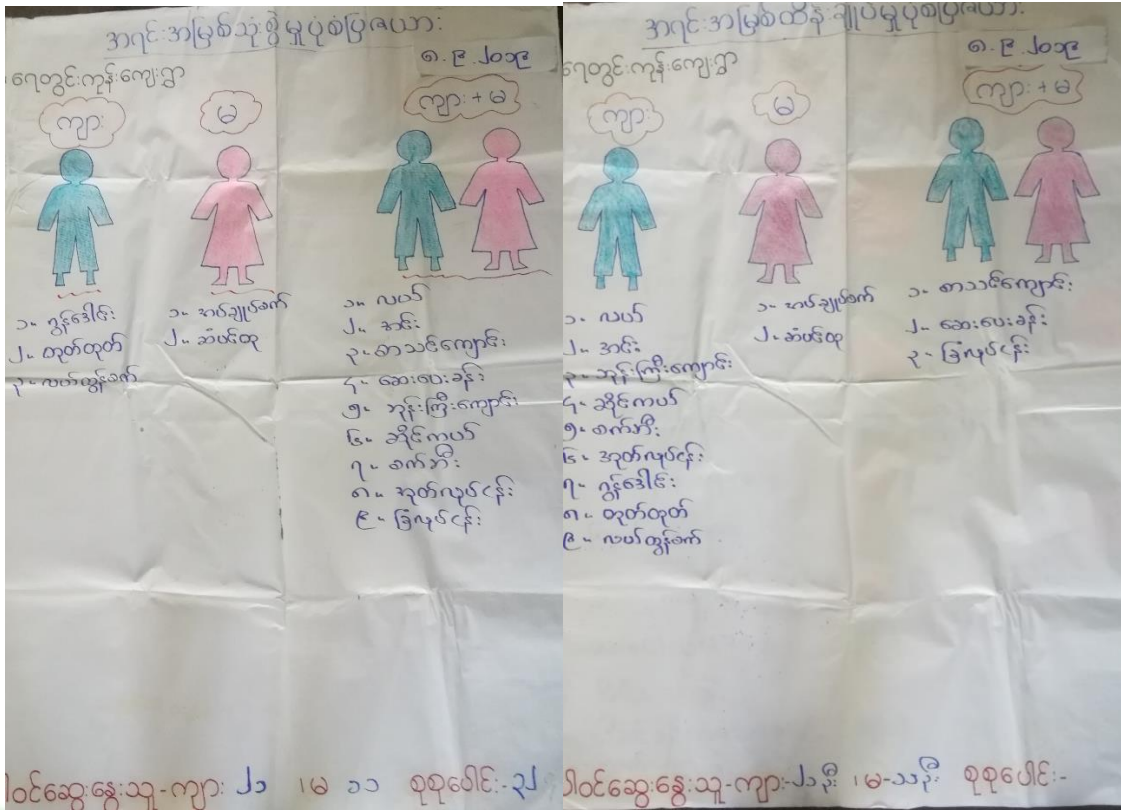 အရင်းအမြစ်သုံးစွဲမှုပုံစံပြဇယား
၁.၉.၂၀၁၉
ရေတွင်းကုန်းကျေးရွာ
ကျား
မ
ကျား + မ
၁။ ဂွန်ဒေါင်း
၂။ ထုတ်ထုတ်
၃။ လယ်ထွန်စက်
၁။ အပ်ချုပ်စက်
၂။ ဆံပင်ထု
၁။ လယ်
၂။ အင်း
၃။ စာသင်ကျောင်း
၄။ ဆေးပေးခန်း
၅။ ဘုန်းကြီးကျောင်း
၆။ ဆိုင်ကယ်
၇။ စက်ဘီး
၈။ အုတ်လုပ်ငန်း
၉။ ခြံလုပ်ငန်း
ပါဝင်ဆွေးနွေးသူ-ကျား ၂၁ ၊မ ၁၁ စုစုပေါင်း-၃၂
အရင်းအမြစ်ထိန်းချုပ်မှုပုံစံပြဇယား
၁.၉.၂၀၁၉
ရေတွင်းကုန်းကျေးရွာ
ကျား
မ
ကျား + မ
၁။ လယ်
၂။ အင်း
၃။ ဘုန်းကြီးကျောင်း
၄။ ဆိုင်ကယ်
၅။ စက်ဘီး
၆။ အုတ်လုပ်ငန်း
၇။ ဂွန်ဒေါင်း
၈။ ထုတ်ထုတ်
၉။ လယ်ထွန်စက်
၁။ အပ်ချုပ်စက်
၂။ ဆံပင်ထု
၁။ စာသင်ကျောင်း
၂။ ဆေးပေးခန်း
၃။ ခြံလုပ်ငန်း
ပါဝင်ဆွေးနွေးသူ-ကျား-၂၁ဦး ၊မ-၁၁ဦး စုစုပေါင်း-